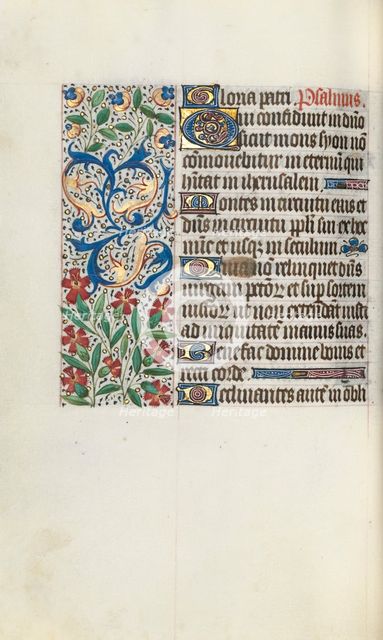 Gloria patri Psalmus
Qui confidunt in dno
sicut mons syon no
comouebitur in eternu qui
habitat in iherusalem
Montes in circuitu eius et
dns in circuitu ppli sui ex hoc
nunc et usq; in seculum
Quia no relinquet dns
virgam pctor et sup sortem
iustor ut non extendat iusti
ad iniquitatē manus suas
Benefac domine bonis et
recti corde
Declinantes autē in obli
heritage
Images
heritage
Images
heritage
Images